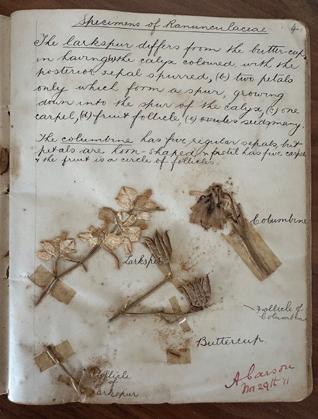 Specimens of Ranunculaceae
The larkspur differs from the buttercup
in having the calyx coloured with the
posterior sepal spurred, (b) two petals
only which form a spur, growing
down into the spur of the calyx, (c) one
carpel, (d) fruit follicle, (e) ovules
The columbine has five regular sepals, but
petals are horn-shaped, pistil has five carpels
& the fruit is a circle of follicles.
Columbine
Larkspur
Follicle of
Columbine
Buttercup
Follicle
of
Larkspur
A Carson
Nov 29th '11